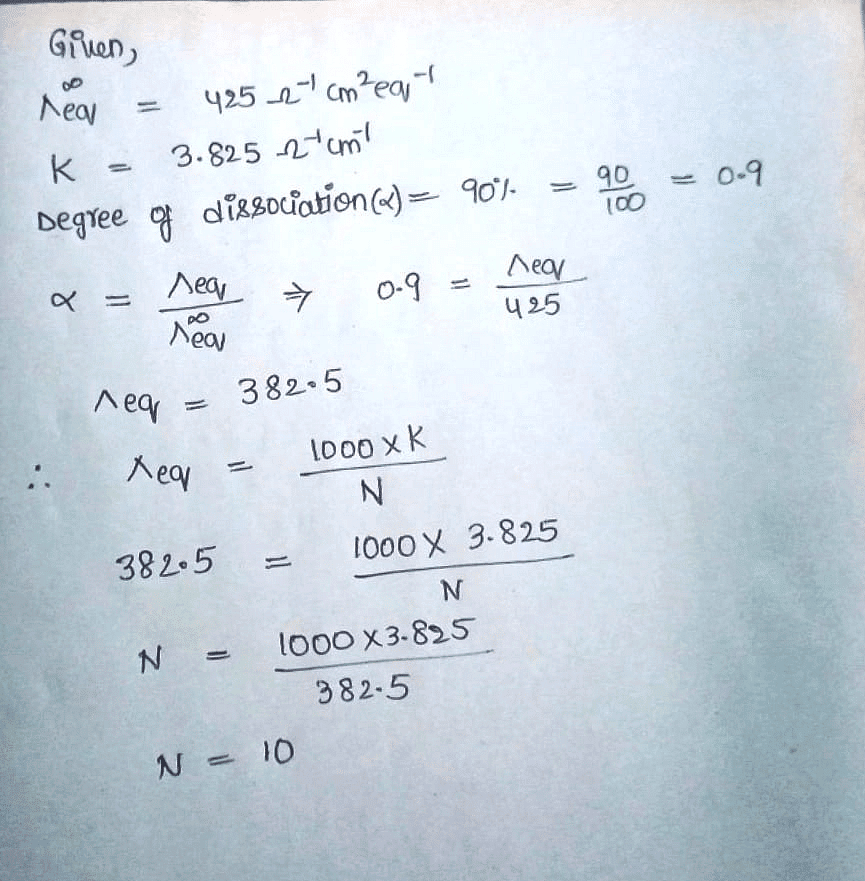 Given,
Λ∞eq = 425 Ω⁻¹ cm² eq⁻¹
K = 3.825 Ω⁻¹ cm⁻¹
Degree of dissociation(α) = 90% = 90/100 = 0.9
α = Λeq/Λ∞eq ⇒ 0.9 = Λeq/425
Λeq = 382.5
∴ Λeq = 1000 x K/N
382.5 = 1000 X 3.825/N
N = 1000 X 3.825/382.5
N = 10